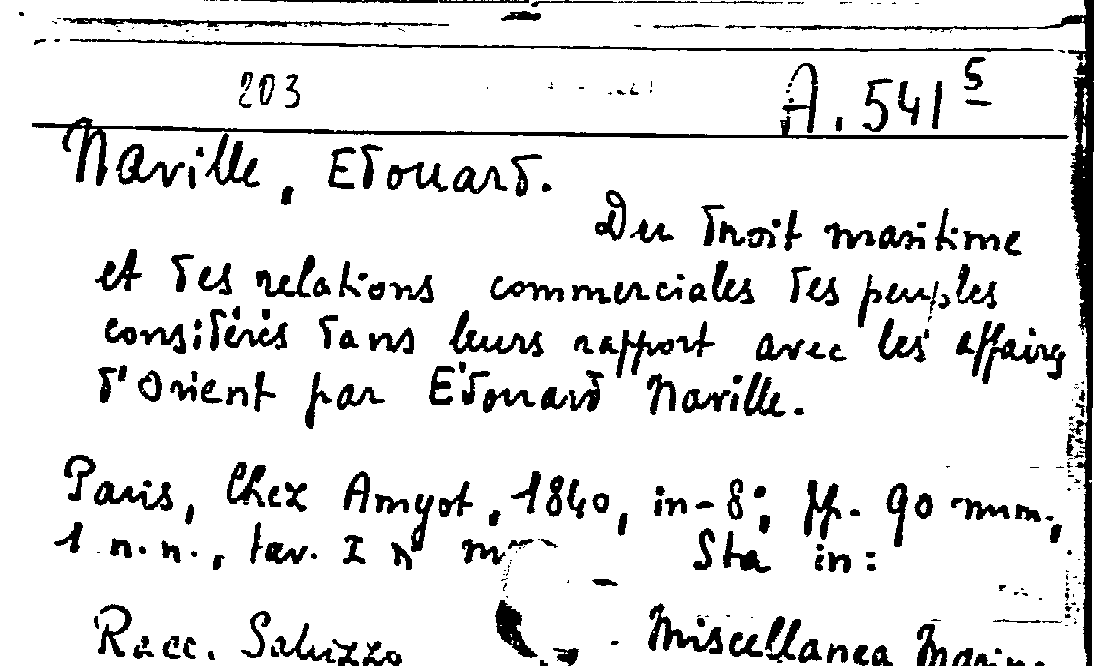 203 A. 541 5
Naville, Edouard.
Du droit maritime
et des relations commerciales des peuples
considérés dans leurs rapport avec les affaires
d'Orient par Edouard Naville.
Paris, Chez Amyot, 1840, in-8°; pp. 90 num.,
1 n.n., tav. I
Sta in:
Racc. Saluzzo
Miscellanea